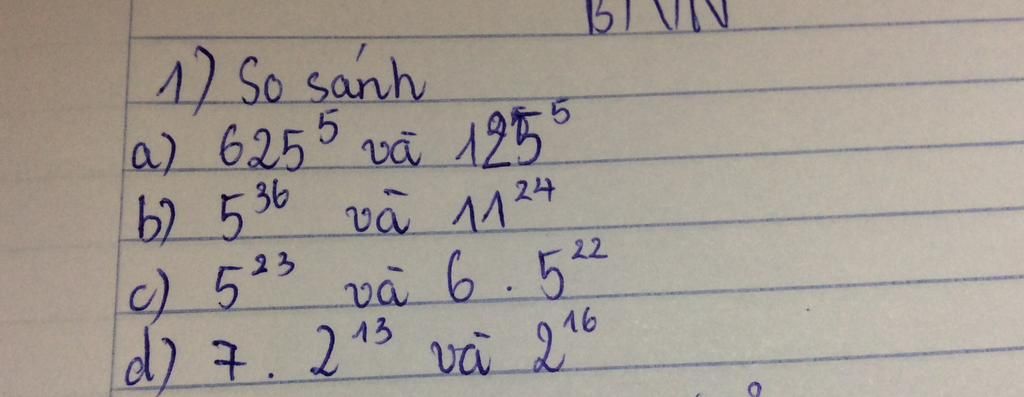 1) So sánh
a) 625⁵ và 125⁵
b) 5³⁶ và 11²⁴
c) 5²³ và 6 . 5²²
d) 7 . 2¹³ và 2¹⁶